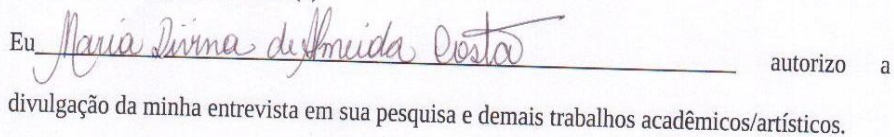 Eu Maria Divina de Almeida Costa autorizo a
divulgação da minha entrevista em sua pesquisa e demais trabalhos acadêmicos/artísticos.